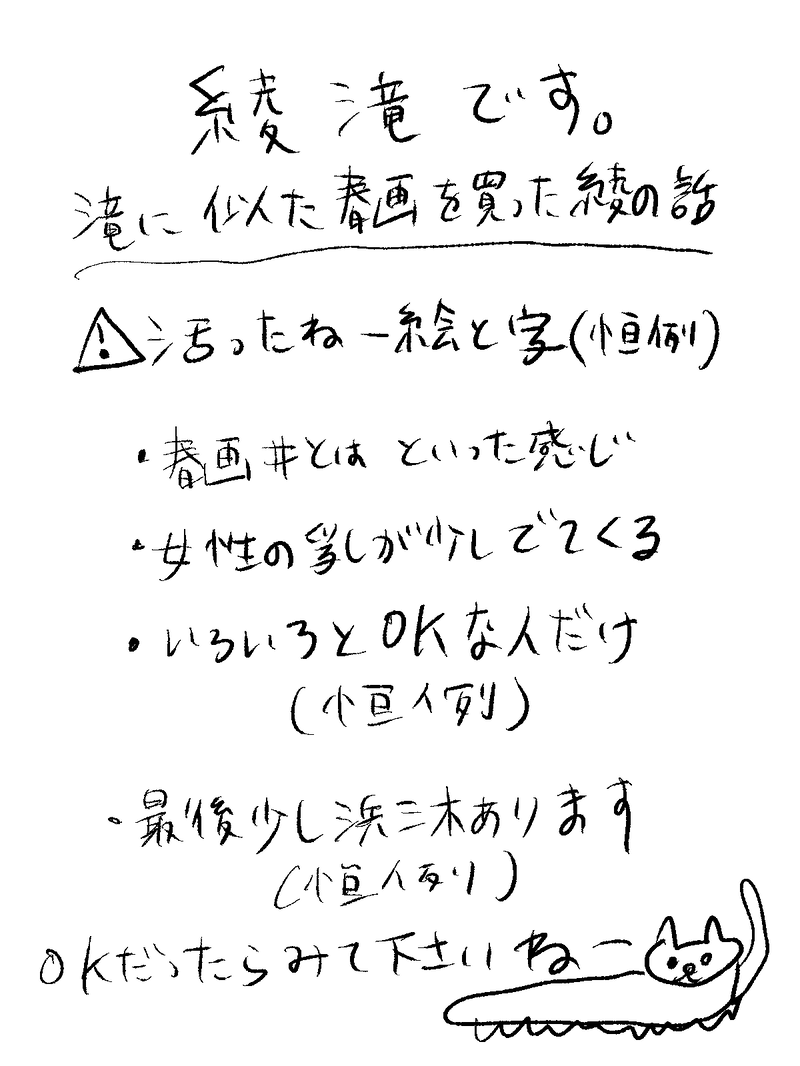 綾滝です。
滝に似た春画を買った綾の話
⚠汚ったねー絵と字(恒例)
・春画#とは といった感じ
・女性の乳が少しでてくる
・いろいろとOKな人だけ
(恒例)
・最後少し浜三木あります
(恒例)
OKだったらみて下さいねー